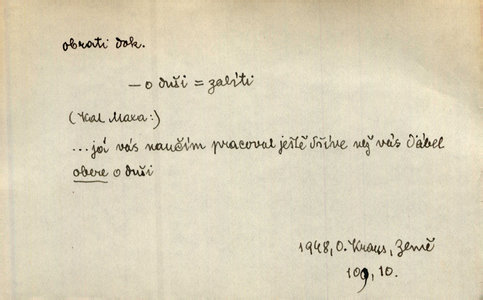 obrati dok.
— o duši = zabíti
(Kal Maxa:)
... já vás naučím pracovat ještě dříve než vás ďábel
obere o duši
1948, O. Kraus, Země
109, 10.